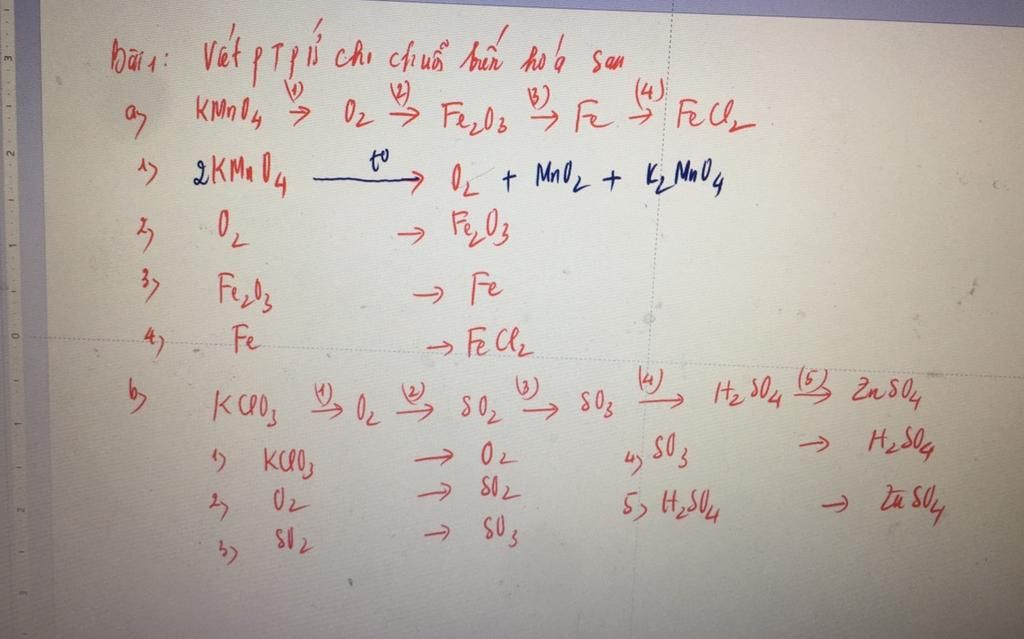 Bài 1: Viết PTPƯ cho chuỗi biến hoá sau
a, KMnO₄ (1)→ O₂ (2)→ Fe₂O₃ (3)→ Fe (4)→ FeCl₂
1) 2KMnO₄ t⁰→ O₂ + MnO₂ + K₂MnO₄
2) O₂ → Fe₂O₃
3) Fe₂O₃ → Fe
4) Fe → FeCl₂
b) KClO₃ (1)→ O₂ (2)→ SO₂ (3)→ SO₃ (4)→ H₂SO₄ (5)→ ZnSO₄
1) KClO₃ → O₂ 4) SO₃ → H₂SO₄
2) O₂ → SO₂ 5) H₂SO₄ → ZnSO₄
3) SO₂ → SO₃